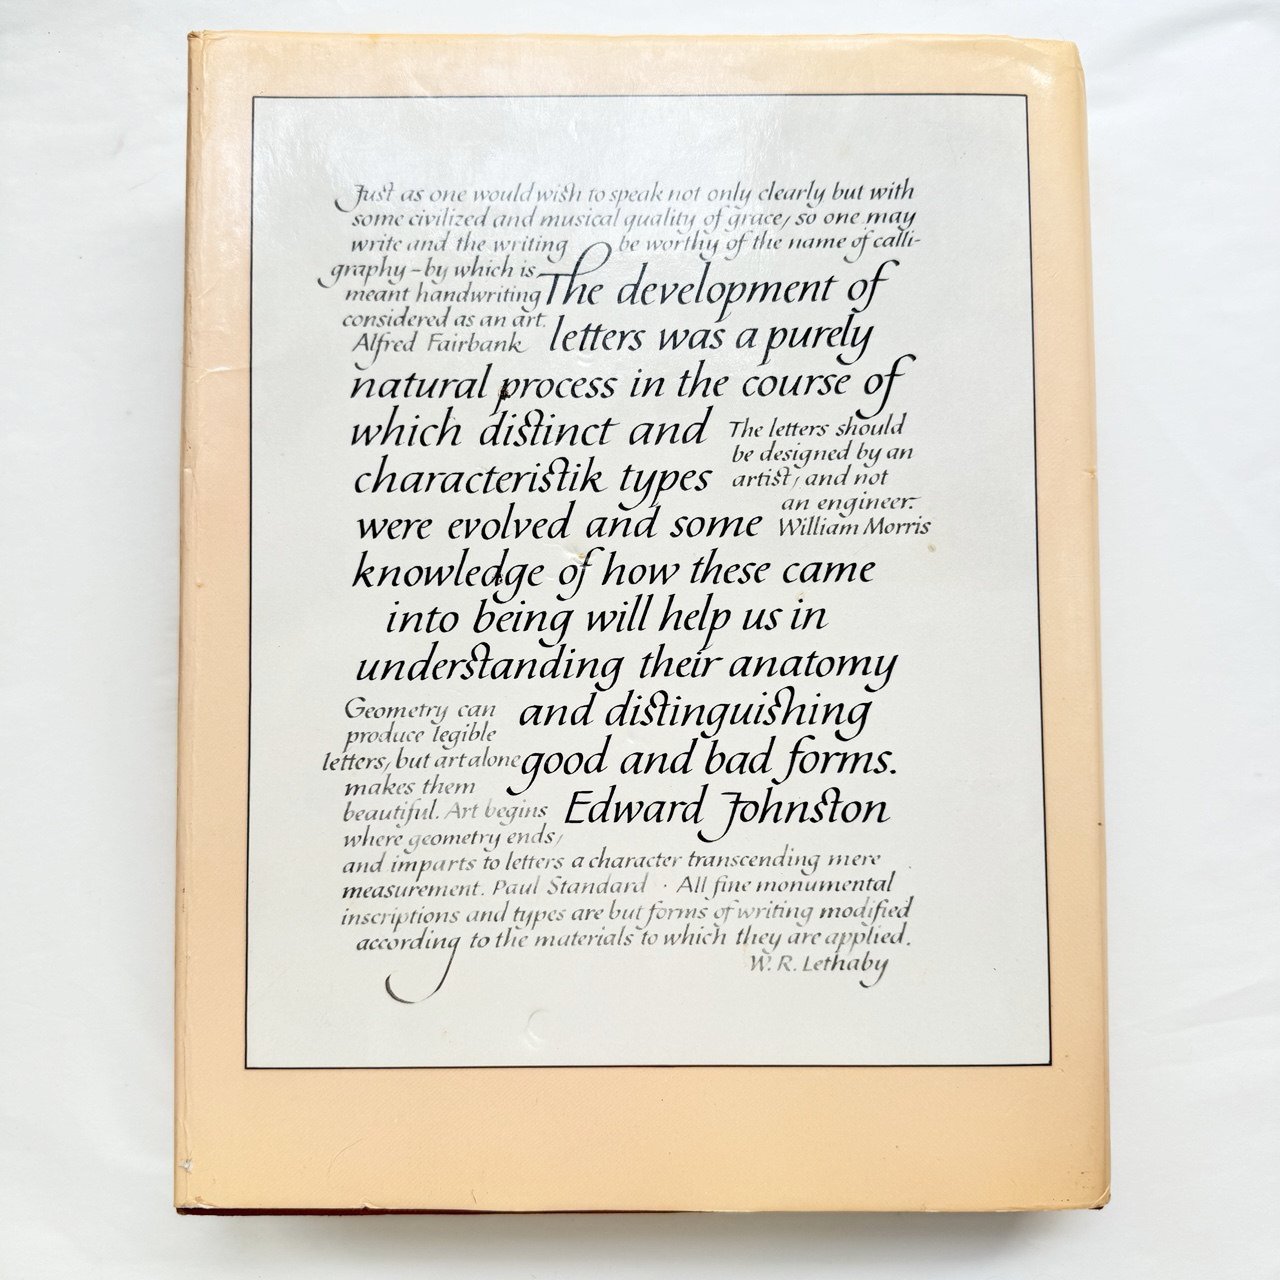 Just as one would wish to speak not only clearly but with
some civilized and musical quality of grace, so one may
write and the writing be worthy of the name of calli-
graphy – by which is
meant handwriting
considered as an art.
Alfred Fairbank
The development of
letters was a purely
natural process in the course of
which distinct and
characteristik types
were evolved and some
knowledge of how these came
into being will help us in
understanding their anatomy
and distinguishing
good and bad forms.
Edward Johnston
The letters should
be designed by an
artist, and not
an engineer.
William Morris
Geometry can
produce legible
letters, but art alone
makes them
beautiful. Art begins
where geometry ends,
and imparts to letters a character transcending mere
measurement. Paul Standard · All fine monumental
inscriptions and types are but forms of writing modified
according to the materials to which they are applied.
W. R. Lethaby